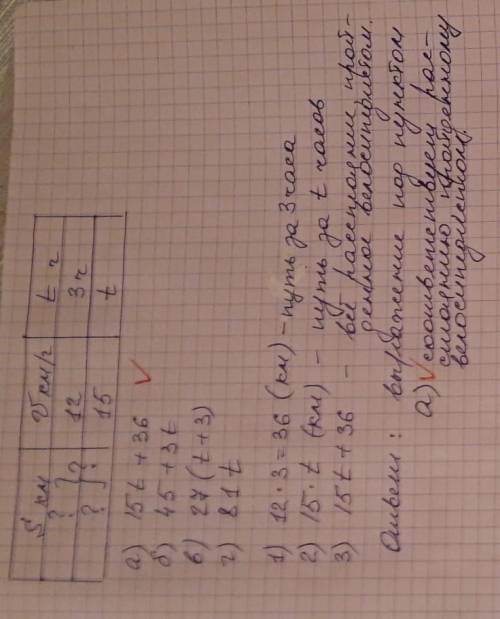 S км V км/ч t ч
? } ? 12 3ч
? 15 t
а) 15t + 36 ✓
б) 45 + 3t
в) 27(t+3)
г) 81t
1) 12·3=36 (км) – путь за 3 часа
2) 15·t (км) – путь за t часов
3) 15t + 36 – всё расстояние прой-
денное велосипедистом.
Ответ: выражение под пунктом
а) ✓ соответствует рас-
стоянию пройденному
велосипедистом.